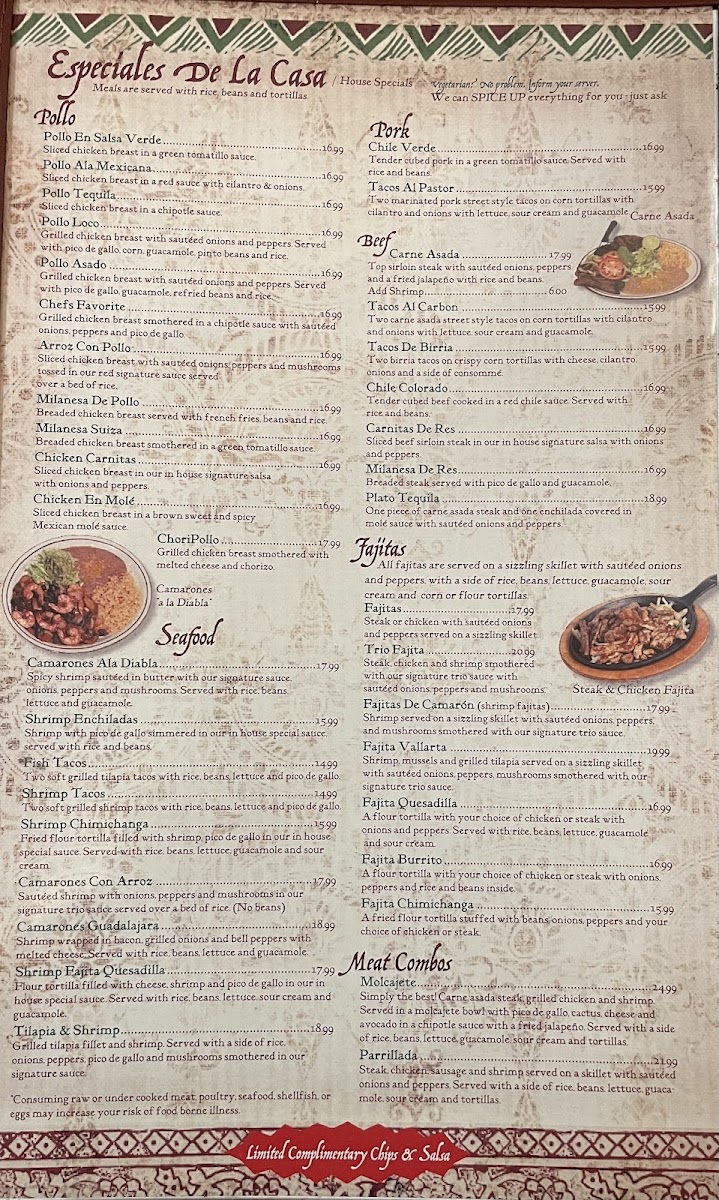 Especiales De La Casa / House Specials
Meals are served with rice, beans and tortillas.
Vegetarian? No problem. Inform your server.
We can SPICE UP everything for you - just ask
Pollo
Pollo En Salsa Verde 16.99
Sliced chicken breast in a green tomatillo sauce.
Pollo Ala Mexicana 16.99
Sliced chicken breast in a red sauce with cilantro & onions.
Pollo Tequila 16.99
Sliced chicken breast in a chipotle sauce.
Pollo Loco 16.99
Grilled chicken breast with sautéed onions and peppers. Served
with pico de gallo, corn, guacamole, pinto beans and rice.
Pollo Asado 16.99
Grilled chicken breast with sautéed onions and peppers. Served
with pico de gallo, guacamole, refried beans and rice.
Chefs Favorite 16.99
Grilled chicken breast smothered in a chipotle sauce with sautéed
onions, peppers and pico de gallo.
Arroz Con Pollo 16.99
Sliced chicken breast with sautéed onions, peppers and mushrooms
tossed in our red signature sauce served
over a bed of rice.
Milanesa De Pollo 16.99
Breaded chicken breast served with french fries, beans and rice.
Milanesa Suiza 16.99
Breaded chicken breast smothered in a green tomatillo sauce.
Chicken Carnitas 16.99
Sliced chicken breast in our in house signature salsa
with onions and peppers.
Chicken En Molé 16.99
Sliced chicken breast in a brown sweet and spicy
Mexican molé sauce.
ChoriPollo 17.99
Grilled chicken breast smothered with
melted cheese and chorizo.
Camarones
"a la Diabla"
Seafood
Camarones Ala Diabla 17.99
Spicy shrimp sautéed in butter with our signature sauce,
onions, peppers and mushrooms. Served with rice, beans,
lettuce and guacamole.
Shrimp Enchiladas 15.99
Shrimp with pico de gallo simmered in our in house special sauce,
served with rice and beans.
Fish Tacos 14.99
Two soft grilled tilapia tacos with rice, beans, lettuce and pico de gallo.
Shrimp Tacos 14.99
Two soft grilled shrimp tacos with rice, beans, lettuce and pico de gallo.
Shrimp Chimichanga 15.99
Fried flour tortilla filled with shrimp, pico de gallo in our in house
special sauce. Served with rice, beans, lettuce, guacamole and sour
cream.
Camarones Con Arroz 17.99
Sautéed shrimp with onions, peppers and mushrooms in our
signature trio sauce served over a bed of rice. (No beans)
Camarones Guadalajara 18.99
Shrimp wrapped in bacon, grilled onions and bell peppers with
melted cheese. Served with rice, beans, lettuce and guacamole.
Shrimp Fajita Quesadilla 17.99
Flour tortilla filled with cheese, shrimp and pico de gallo in our in
house special sauce. Served with rice, beans, lettuce, sour cream and
guacamole.
Tilapia & Shrimp 18.99
Grilled tilapia fillet and shrimp. Served with a side of rice,
onions, peppers, pico de gallo and mushrooms smothered in our
signature sauce.
*Consuming raw or under cooked meat, poultry, seafood, shellfish, or
eggs may increase your risk of food borne illness.
Pork
Chile Verde 16.99
Tender cubed pork in a green tomatillo sauce. Served with
rice and beans.
Tacos Al Pastor 15.99
Two marinated pork street style tacos on corn tortillas with
cilantro and onions with lettuce, sour cream and guacamole.
Carne Asada
Beef
Carne Asada 17.99
Top sirloin steak with sautéed onions, peppers
and a fried jalapeño with rice and beans.
Add Shrimp 6.00
Tacos Al Carbon 15.99
Two carne asada street style tacos on corn tortillas with cilantro
and onions with lettuce, sour cream and guacamole.
Tacos De Birria 15.99
Two birria tacos on crispy corn tortillas with cheese, cilantro,
onions and a side of consommé.
Chile Colorado 16.99
Tender cubed beef cooked in a red chile sauce. Served with
rice and beans.
Carnitas De Res 16.99
Sliced beef sirloin steak in our in house signature salsa with onions
and peppers.
Milanesa De Res 16.99
Breaded steak served with pico de gallo and guacamole.
Plato Tequila 18.99
One piece of carne asada steak and one enchilada covered in
molé sauce with sautéed onions and peppers.
Fajitas
All fajitas are served on a sizzling skillet with sautéed onions
and peppers, with a side of rice, beans, lettuce, guacamole, sour
cream and corn or flour tortillas.
Fajitas 17.99
Steak or chicken with sautéed onions
and peppers served on a sizzling skillet.
Trio Fajita 20.99
Steak, chicken and shrimp smothered
with our signature trio sauce with
sautéed onions, peppers and mushrooms.
Steak & Chicken Fajita
Fajitas De Camarón (shrimp fajitas) 17.99
Shrimp served on a sizzling skillet with sautéed onions, peppers,
and mushrooms smothered with our signature trio sauce.
Fajita Vallarta 19.99
Shrimp, mussels and grilled tilapia served on a sizzling skillet
with sautéed onions, peppers, mushrooms smothered with our
signature trio sauce.
Fajita Quesadilla 16.99
A flour tortilla with your choice of chicken or steak with
onions and peppers. Served with rice, beans, lettuce, guacamole
and sour cream.
Fajita Burrito 16.99
A flour tortilla with your choice of chicken or steak with onions,
peppers and rice and beans inside.
Fajita Chimichanga 15.99
A fried flour tortilla stuffed with beans, onions, peppers and your
choice of chicken or steak.
Meat Combos
Molcajete 24.99
Simply the best! Carne asada steak, grilled chicken and shrimp.
Served in a molcajete bowl with pico de gallo, cactus, cheese and
avocado in a chipotle sauce with a fried jalapeño. Served with a side
of rice, beans, lettuce, guacamole, sour cream and tortillas.
Parrillada 21.99
Steak, chicken, sausage and shrimp served on a skillet with sautéed
onions and peppers. Served with a side of rice, beans, lettuce, guaca-
mole, sour cream and tortillas.
Limited Complimentary Chips & Salsa